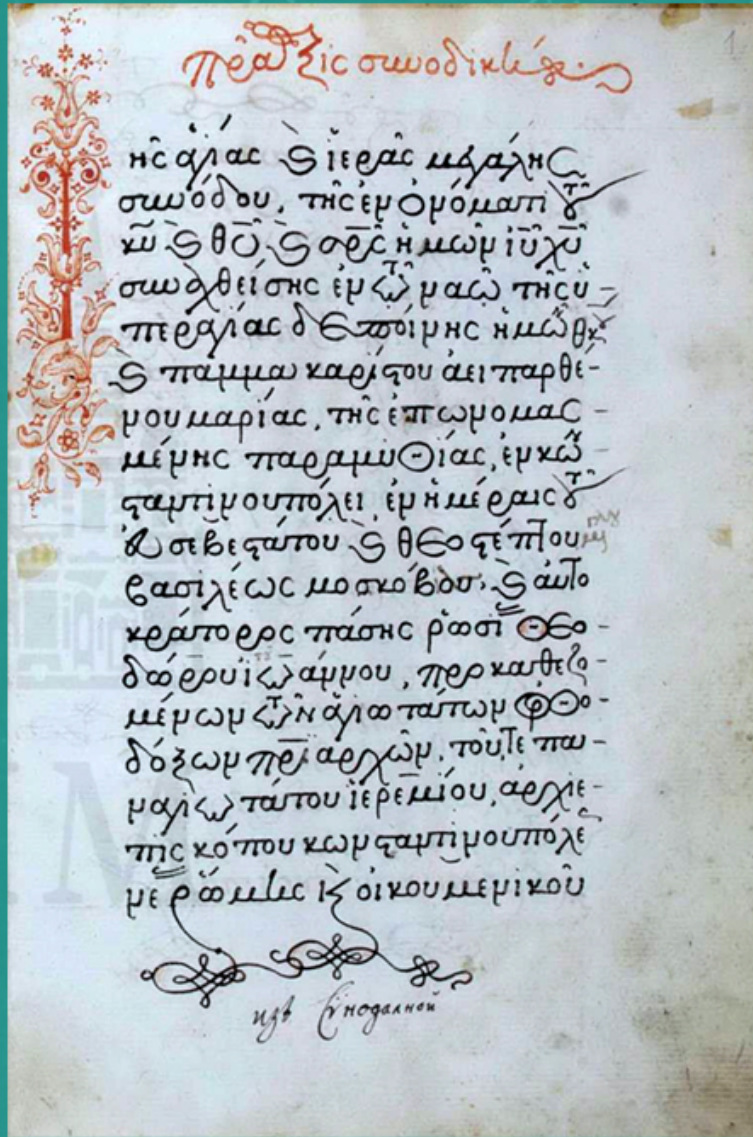 πρᾶξις συνοδική
1
ῆς ἁγίας καὶ ἱερᾶς μεγάλης
συνόδου, τῆς ἐν ὀνόματι τοῦ
κυ καὶ θυ καὶ σρς ἡμῶν ιυ χυ
συναχθείσης ἐν τῷ ναῷ τῆς ὑ-
περαγίας δεσποίνης ἡμῶν θκου
καὶ παμμακαρίστου ἀειπαρθέ-
νου μαρίας, τῆς ἐπωνομασ-
μένης παραμυθίας, ἐν κων
σταντινουπόλει ἐν ἡμέραις τοῦ
εὐσεβεστάτου καὶ θεοστέπτου
βασιλέως μοσκόβου, καὶ αὐτο
κράτορος πάσης ῥωσί Θεο
δώρου ἰωάννου, προκαθεζο
μένων τῶν ἁγιωτάτων ὀρθο-
δόξων πριαρχῶν, τοῦ τε πα-
ναγιωτάτου ἱερεμίου, ἀρχιε-
πισκόπου κωνσταντινουπόλε
νέ ῥώμης καὶ οἰκουμενικοῦ
изъ Сѵнодалной